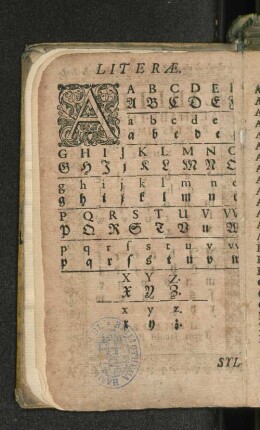 LITERÆ.
A
A B C D E F
A B C D E F
a b c d e f
a b c d e f
G H I J K L M N O
G H I J K L M N O
g h i j k l m n o
g h i j k l m n o
P Q R S T U V W
P Q R S T V U W
p q r ſ s t u v w
p q r ſ s t u v w
X Y Z.
X Y Z.
x y z.
x y z.
SYL